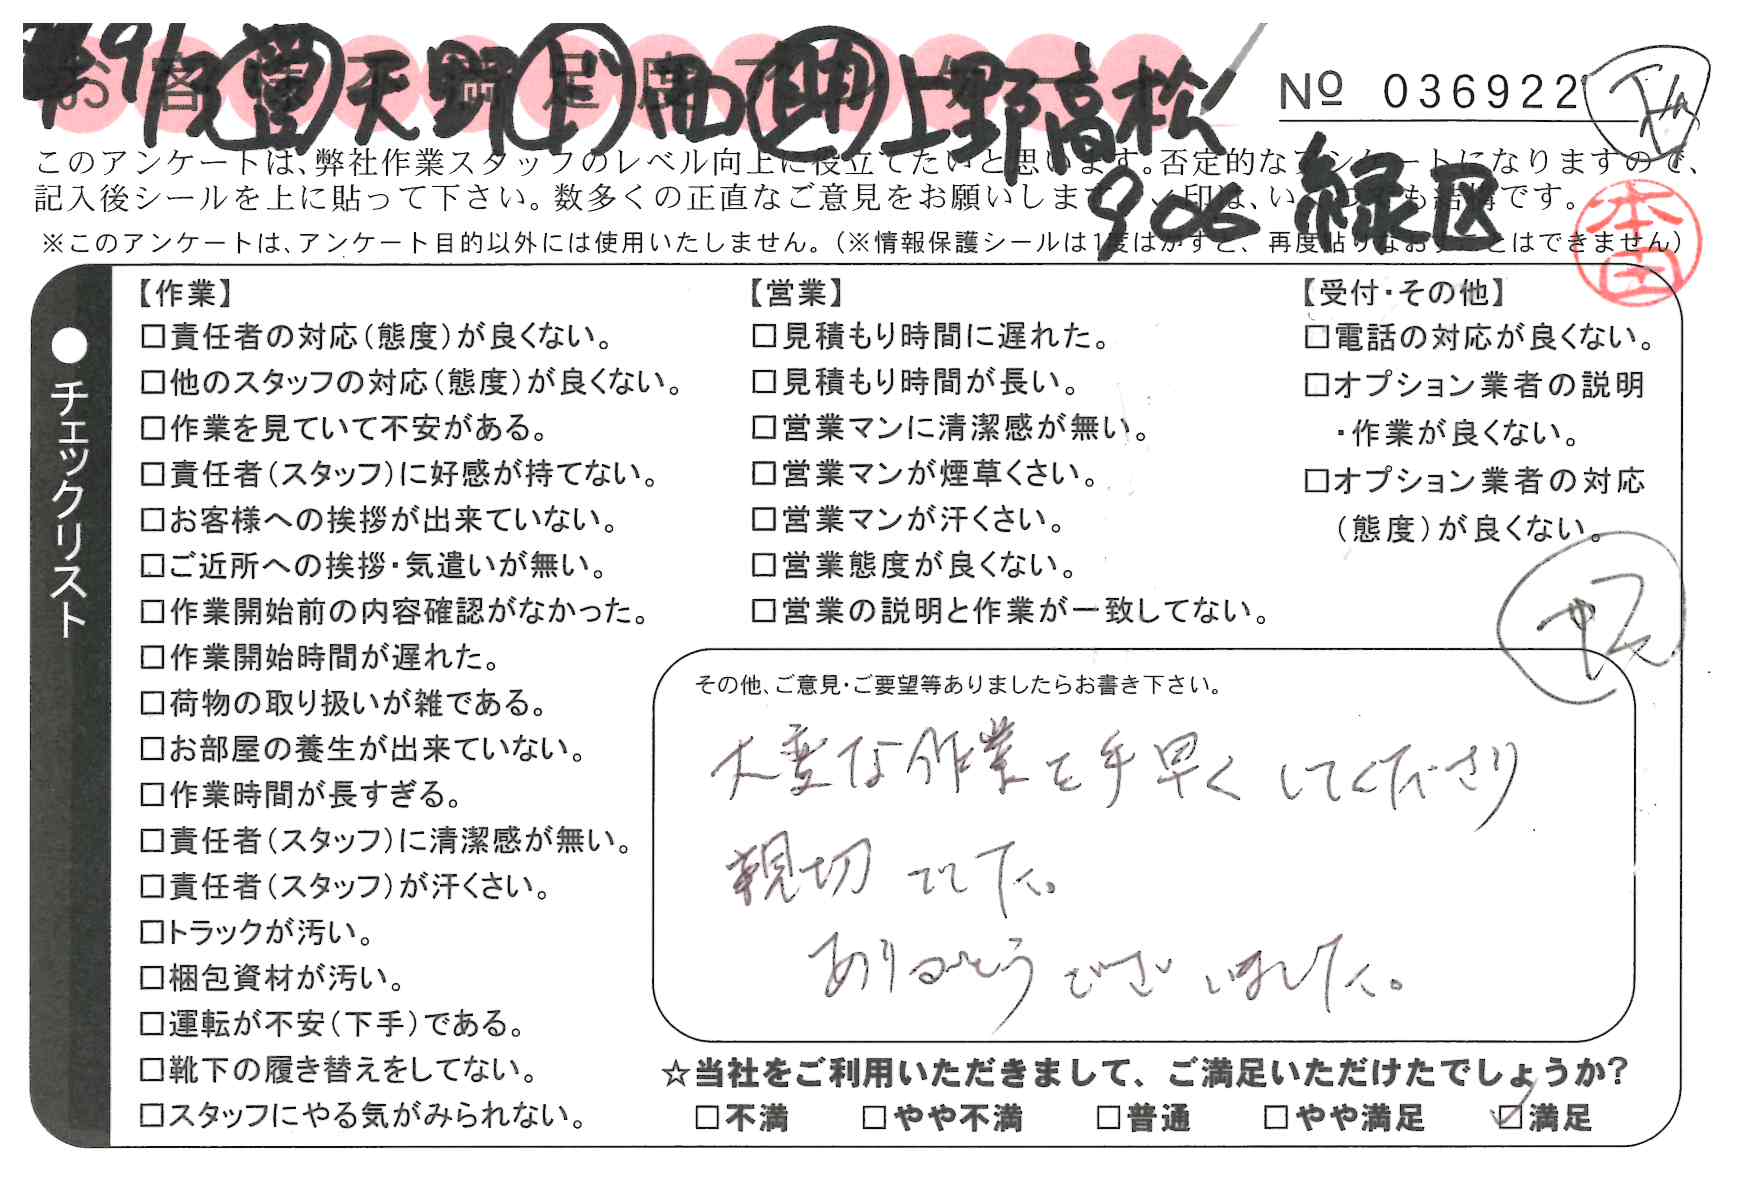 お客様不満足度アンケート
豊 天野 上 西口 田中 上野 高松
№ 036922
906 緑区
このアンケートは、弊社作業スタッフのレベル向上に役立てたいと思います。否定的なアンケートになりますので、
記入後シールを上に貼って下さい。数多くの正直なご意見をお願いします。✓印は、いくつでも結構です。
※このアンケートは、アンケート目的以外には使用いたしません。(※情報保護シールは1度はがすと、再度貼りなおすことはできません)
本田
●チェックリスト
【作業】
□責任者の対応(態度)が良くない。
□他のスタッフの対応(態度)が良くない。
□作業を見ていて不安がある。
□責任者(スタッフ)に好感が持てない。
□お客様への挨拶が出来ていない。
□ご近所への挨拶・気遣いが無い。
□作業開始前の内容確認がなかった。
□作業開始時間が遅れた。
□荷物の取り扱いが雑である。
□お部屋の養生が出来ていない。
□作業時間が長すぎる。
□責任者(スタッフ)に清潔感が無い。
□責任者(スタッフ)が汗くさい。
□トラックが汚い。
□梱包資材が汚い。
□運転が不安(下手)である。
□靴下の履き替えをしてない。
□スタッフにやる気がみられない。
【営業】
□見積もり時間に遅れた。
□見積もり時間が長い。
□営業マンに清潔感が無い。
□営業マンが煙草くさい。
□営業マンが汗くさい。
□営業態度が良くない。
□営業の説明と作業が一致してない。
【受付・その他】
□電話の対応が良くない。
□オプション業者の説明
・作業が良くない。
□オプション業者の対応
(態度)が良くない。
その他、ご意見・ご要望等ありましたらお書き下さい。
大変な作業を手早くしてくださり
親切でした。
ありがとうございました。
☆当社をご利用いただきまして、ご満足いただけたでしょうか?
□不満 □やや不満 □普通 □やや満足 ☑満足